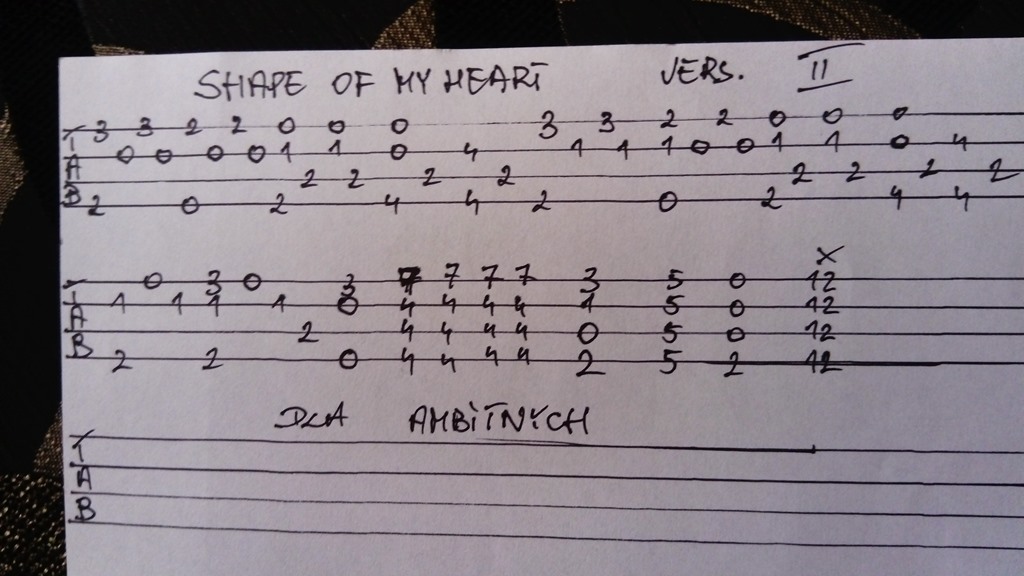 SHAPE OF MY HEART VERS. II
T 3 3 2 2 0 0 0 3 3 2 2 0 0 0
A 0 0 0 0 1 1 0 4 1 1 1 0 0 1 1 0 4
2 2 2 2 2 2 2 2
B 2 0 2 4 4 2 0 2 4 4
X
T 0 3 0 3 7 7 7 7 3 5 0 12
A 1 1 1 1 0 4 4 4 4 1 5 0 12
2 4 4 4 4 0 5 0 12
B 2 2 0 4 4 4 4 2 5 2 12
DLA AMBITNYCH
T
A
B